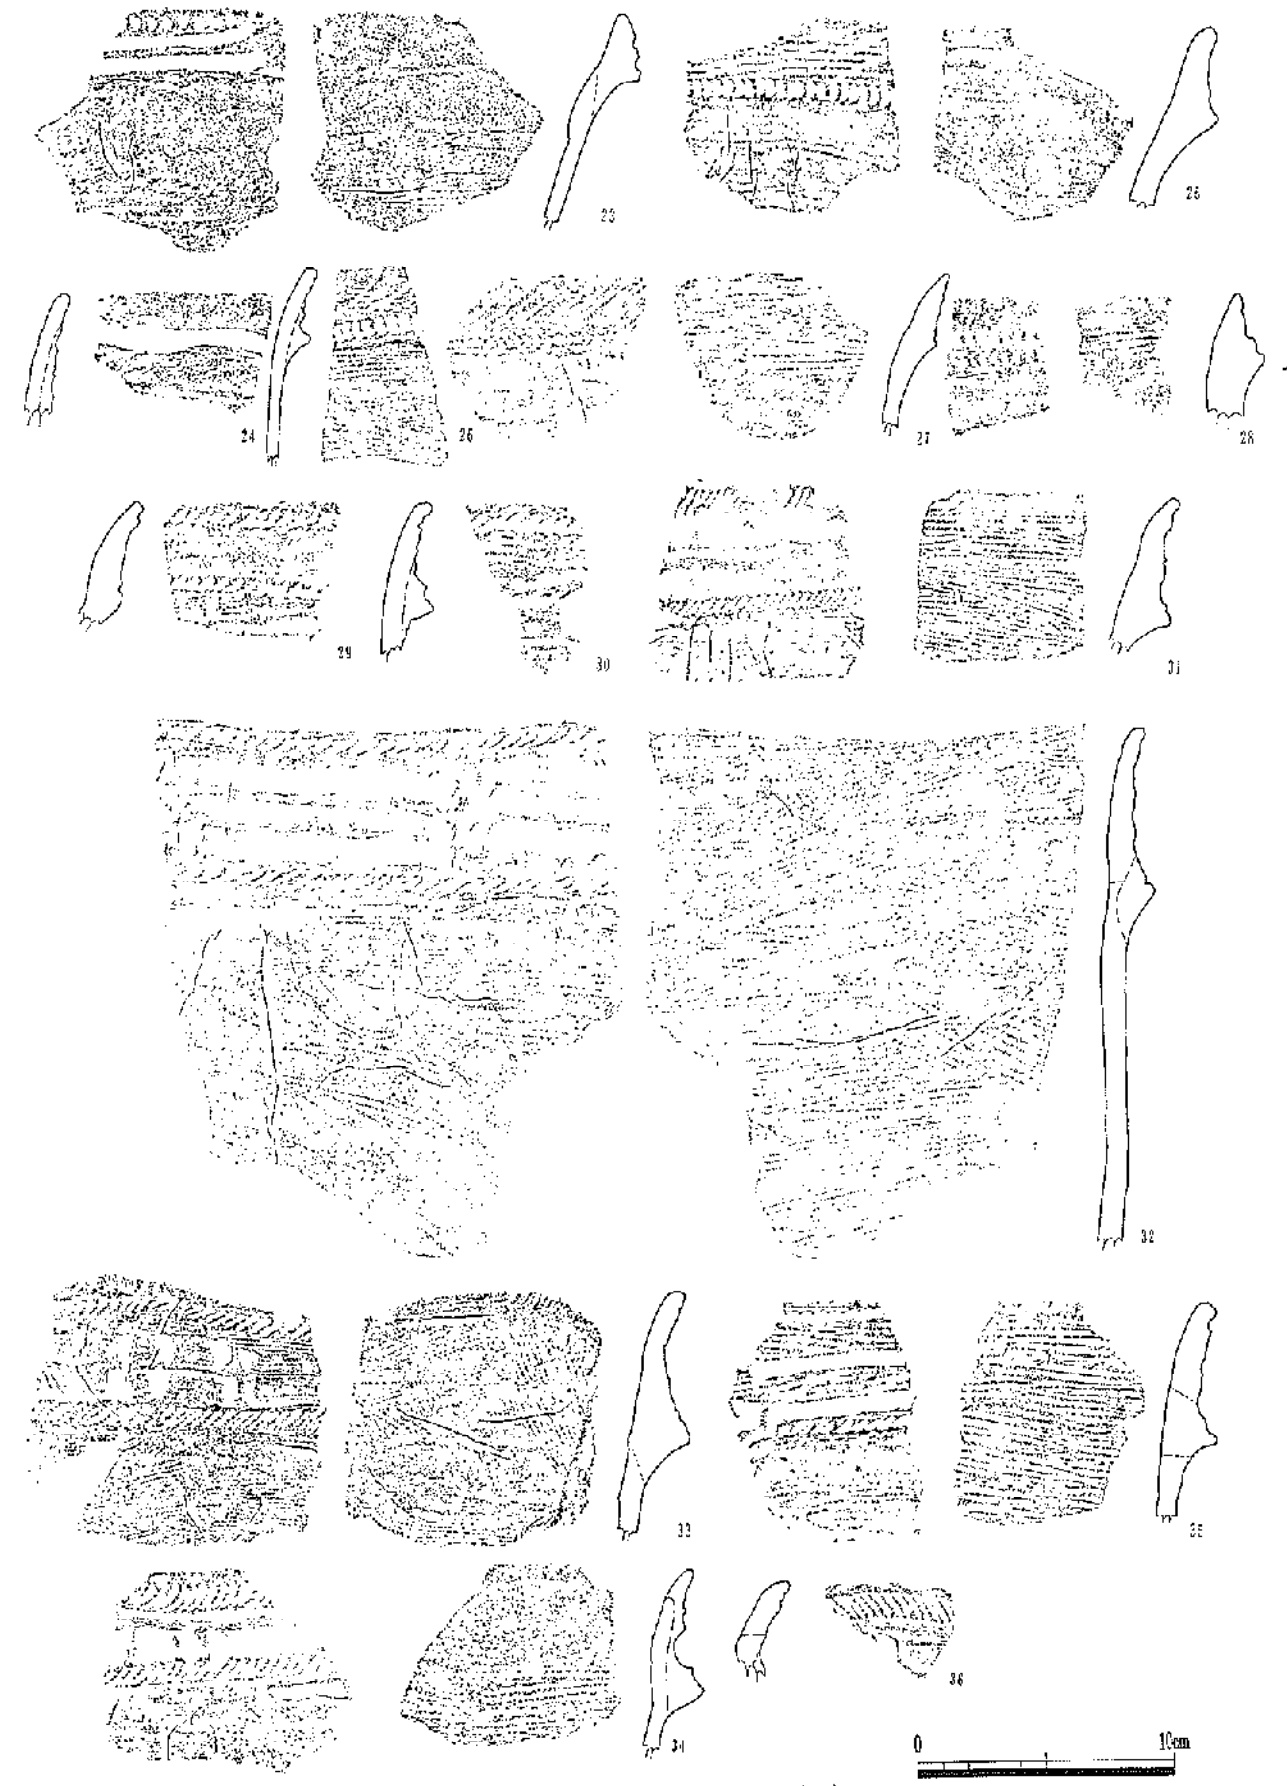 23
26
24
25
27
28
29
30
31
32
33
35
34
36
0 10cm